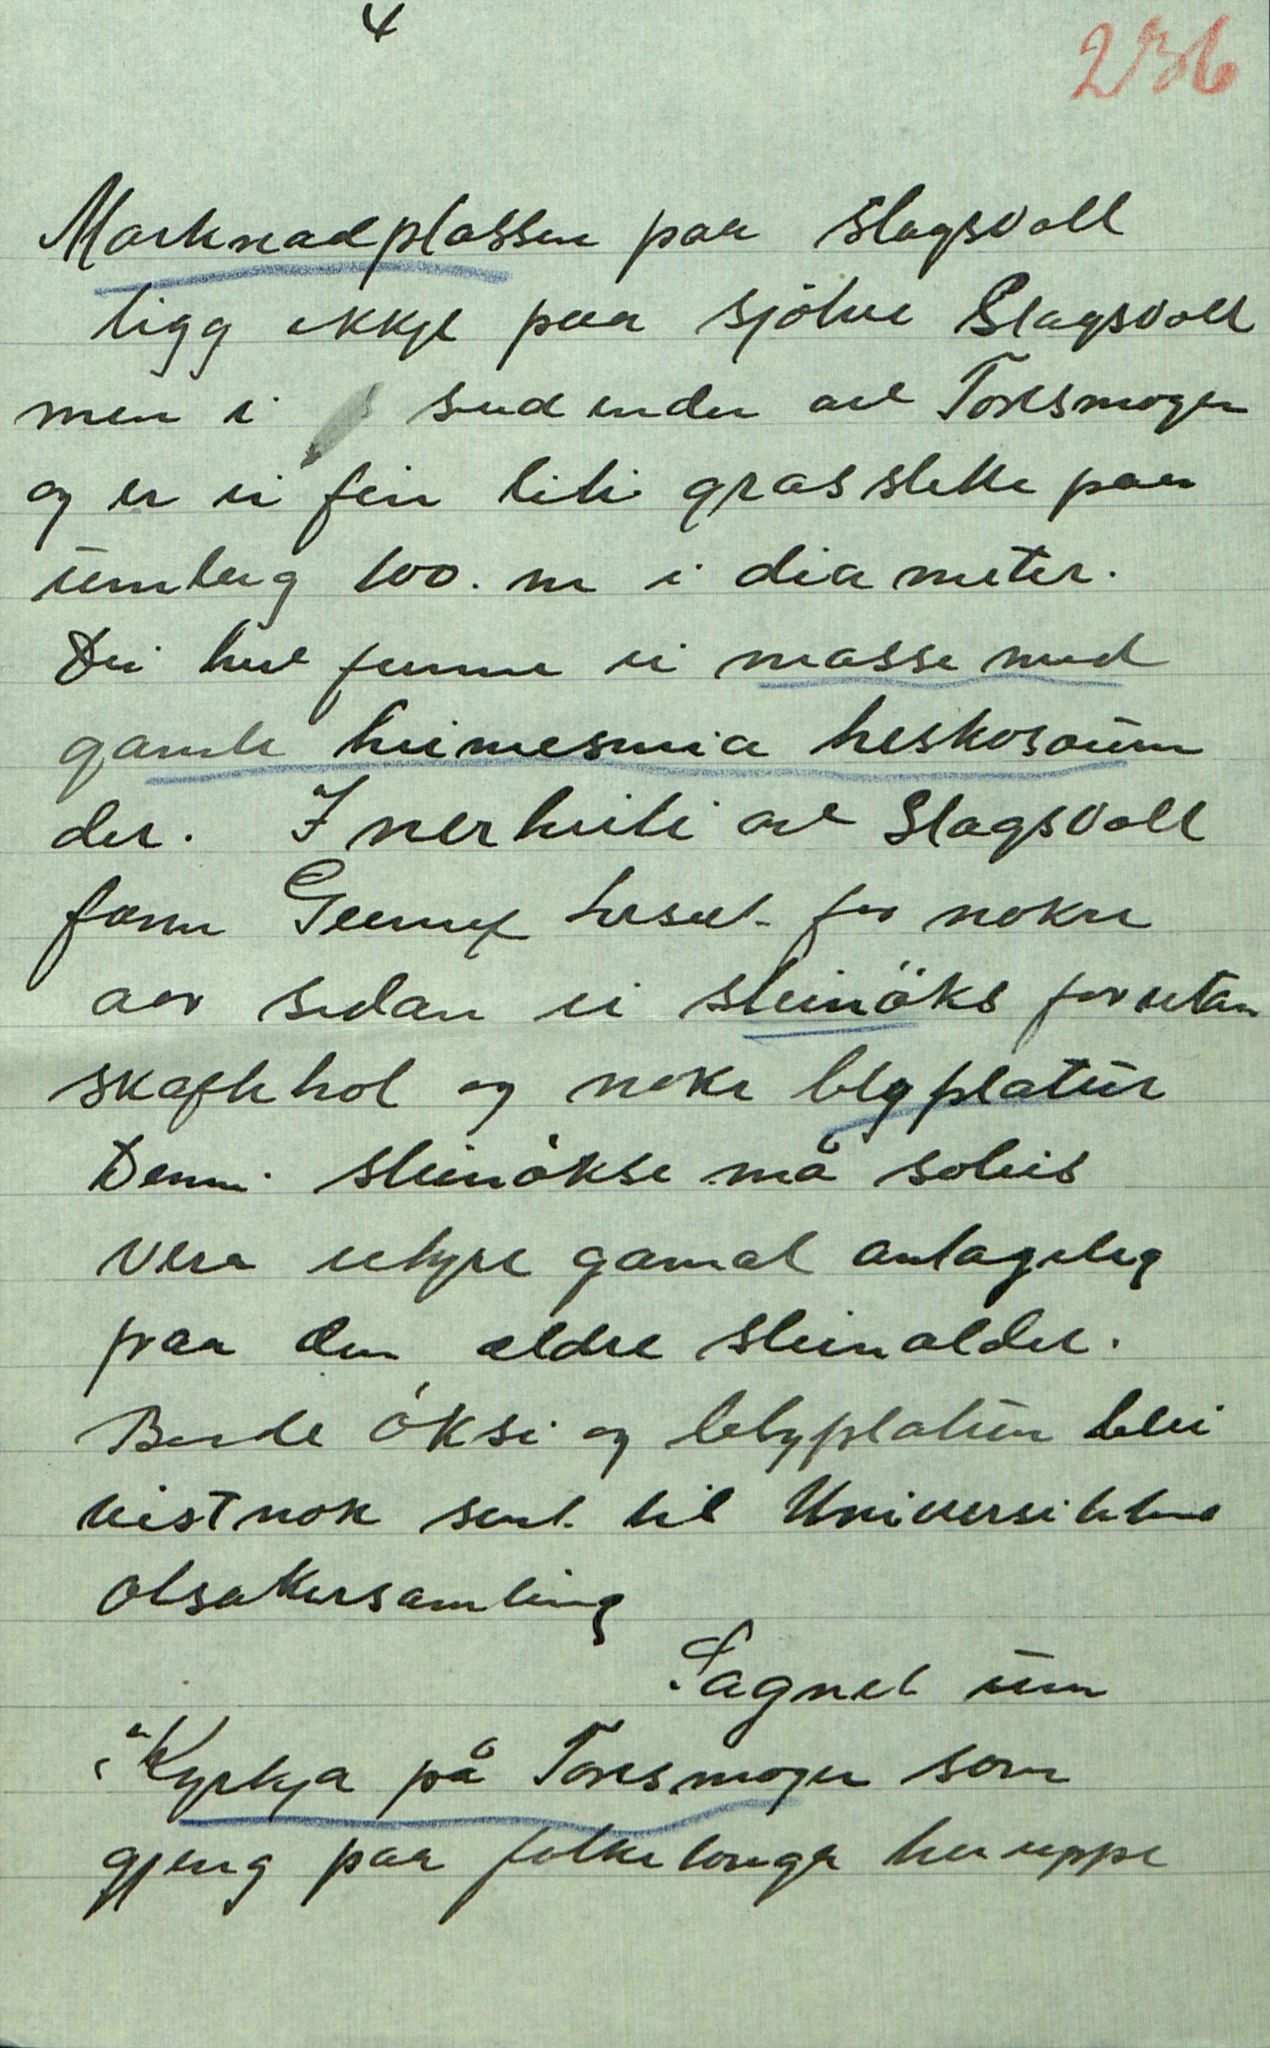 4
236
Marknadplassen paa Slagsvoll
ligg ikkje paa sjölve Slagsvoll
men i sudenden av Toresmogen
og er ei fin liti grasslette paa
umlag 100. m i diameter.
Dei hev funne ei masse med
gamle heimesmia heskosaum
der. I nerheiti av Slagsvoll
fann for nokre
aar sidan ei steinöks forutan
skaftehol og nokre blyplatur
Denni steinökse må soleis
vera utyre gamal antageleg
fraa den eldre steinalder.
Baade öksi og blyplatun blei
vistnok sent til Universitetets
olsakersamling
Sagnet um
"Kyrkja på Toresmogen som
gjeng paa folketonga her uppe